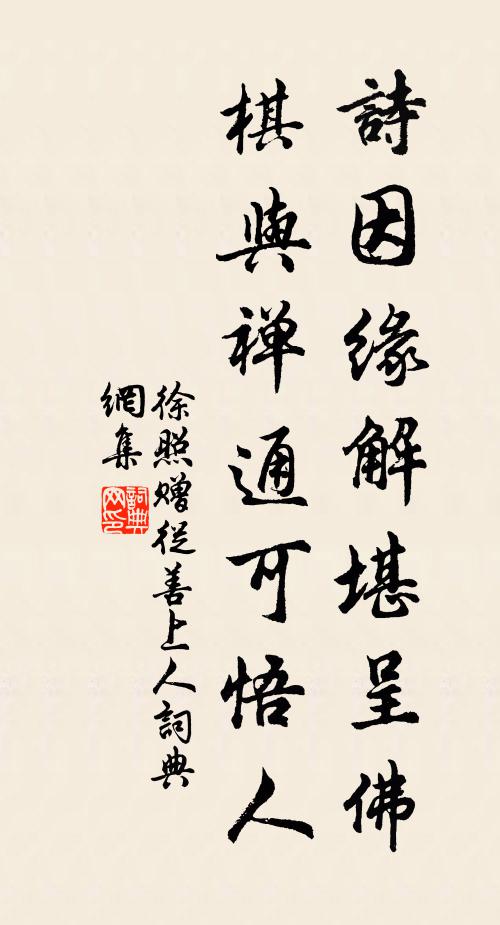 詩因緣解堪呈佛
棋與禅通可悟人
徐照贈從善上人詞典
網集
詞典
网印